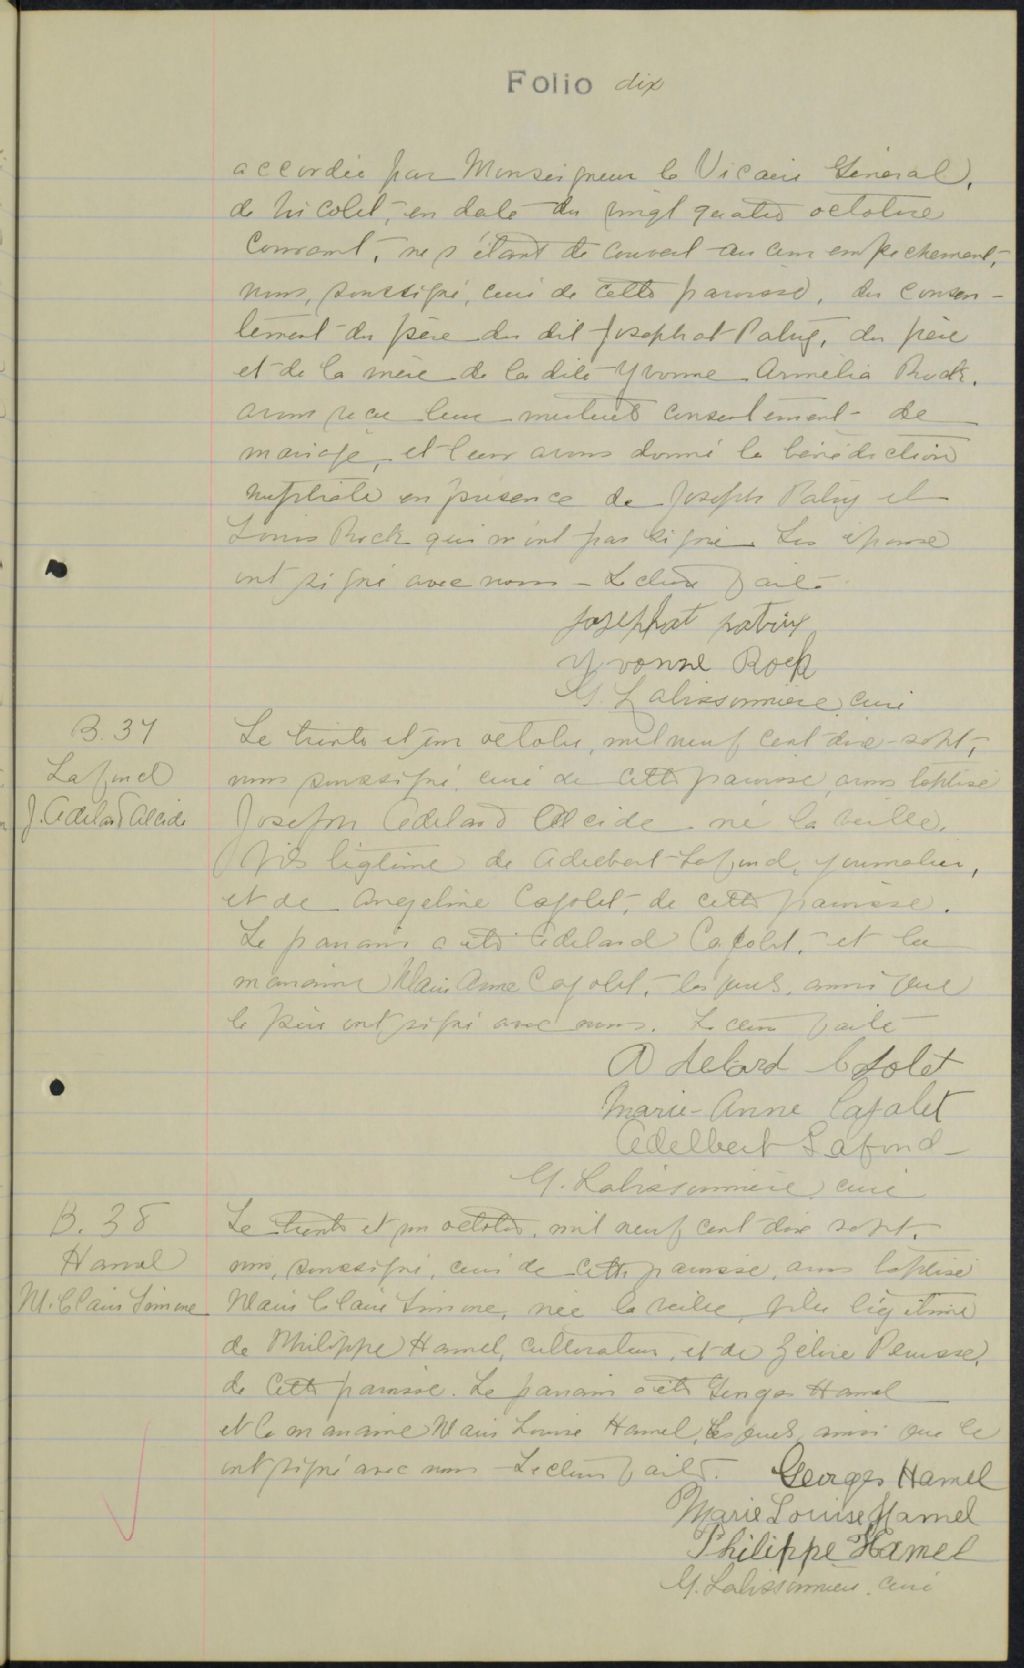 Folio dix
accordée par Monseigneur le Vicaire Général,
de Nicolet, en date du vingt quatre octobre
courant, ne s'étant découvert aucun empêchement,
nous, soussigné, curé de cette paroisse, du consen-
tement du père du dit Josephat Patry, du père
et de la mère de la dite Yvonne Armélia Rock,
avons reçu leur mutuel consentement de
mariage, et leur avons donné la bénédiction
nuptiale en présence de Joseph Patry et
Louis Rock qui n'ont pas signé. Les époux
ont signé avec nous - Lecture faite.
Josephat patry
Yvonne Rock
G. Labissonnière, curé
B. 37
Lafond
J. Adelard Alcide
Le trente et un octobre, mil neuf cent dix-sept,
nous soussigné, curé de cette paroisse, avons baptisé
Joseph Adelard Alcide né la veille,
fils ligtime de Adelbert Lafond, journalier,
et de Angeline Cajolet, de cette paroisse.
Le parrain a été Adelard Cajolet, et la
marraine Marie Anne Cajolet, lesquels, ainsi que
le père ont signé avec nous. Lecture faite
Adelard Cajolet
Marie-Anne Cajolet
Adelbert Lafond
G. Labissonnière, curé
B. 38
Hamel
M. Claire Simone
Le trente et un octobre, mil neuf cent dix sept,
nous, soussigné, curé de cette paroisse, avons baptisé
Marie Claire Simone, née la veille, fille légitime
de Philippe Hamel, cultivateur, et de Zélire
de cette paroisse. Le parrain a été Georges Hamel
et la marraine Marie Louise Hamel, lesquels, ainsi que le
ont signé avec nous - Lecture faite.
Georges Hamel
Marie Louise Hamel
Philippe Hamel
G. Labissonnière, curé